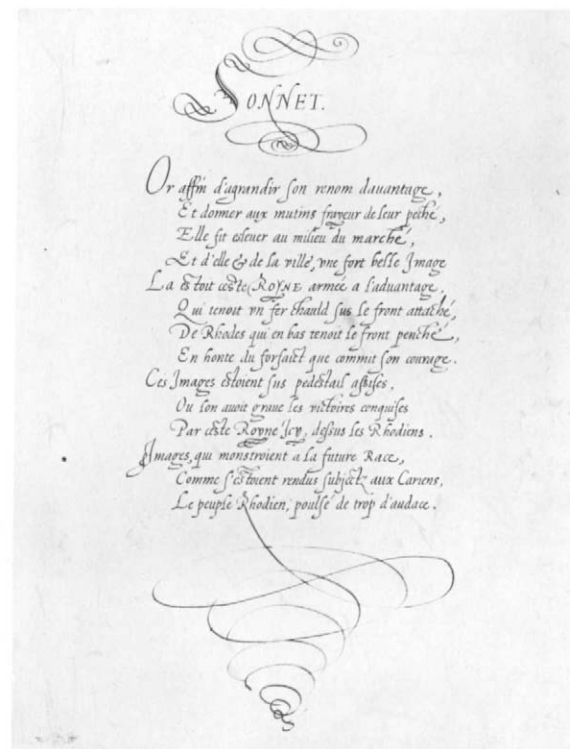 SONNET.
Or affin d'agrandir son renom davantage,
Et donner aux mutins frayeur de leur peché,
Elle fit eslever au milieu du marché,
Et d'elle & de la ville, vne fort belle Image
La estoit ceste ROYNE armee a l'aduantage,
Qui tenoit vn fer chauld sus le front attaché,
De Rhodes qui en bas tenoit le front penché,
En honte du forfaict que commit son courage.
Ces Images estoient sus pedestail assises,
Ou lon auoit graué les victoires conquises
Par ceste Royne Icy, dessus les Rhodiens.
Images, qui monstroient a la future Race,
Comme s'estoient rendus subjectz aux Cariens,
Le peuple Rhodien, poulsé de trop d'audace.